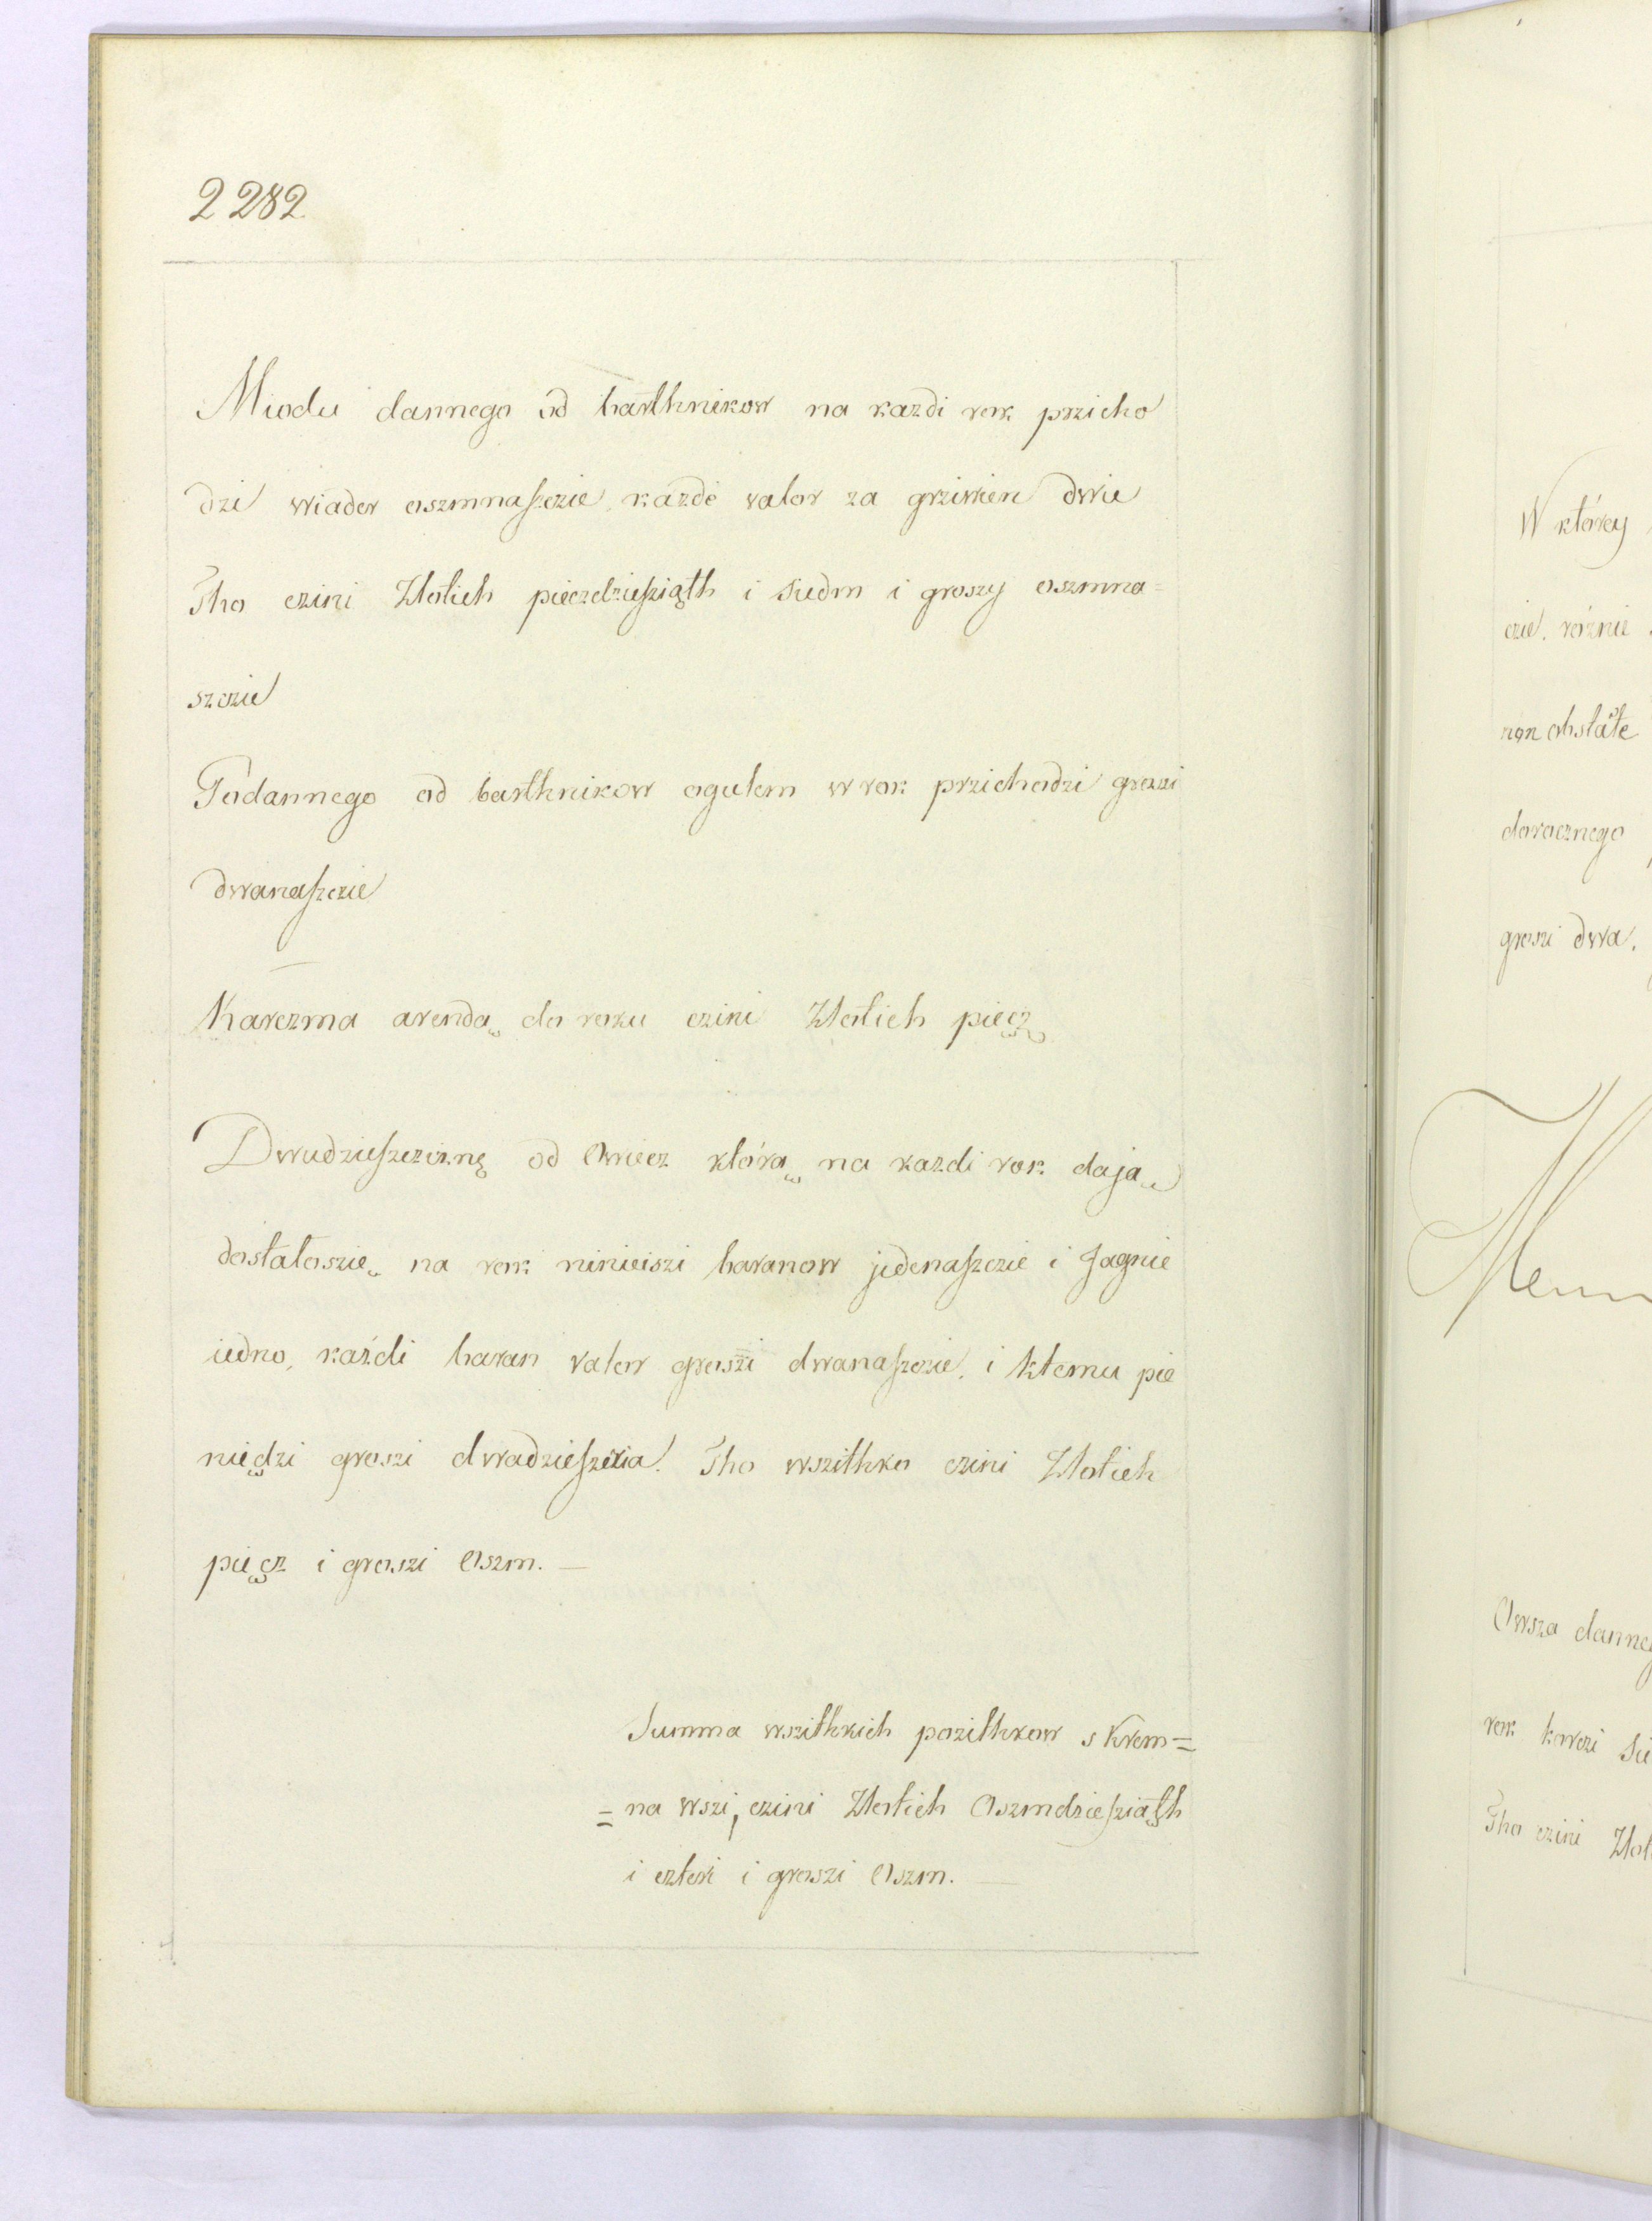 2282
Miodu dannego od barthnikow na kazdi rok przicho
dzi wiader oszmnaszczie, każde valor za grziwien dwie
Tho czini Złotich pieczdziesziąth i siedm i groszy oszmna=
szczie
Podannego od barthnikow ogułem w rok przichodzi groszi
dwanaszczie
Karczma arendą do roku czini Złotich pięcz
Dwudzieszcziznę od Owiecz którą na kazdi rok dają
dostałoszię na rok ninieiszi baranow jedenaszczie i Jagnie
iedno, każdi baran valor groszi dwanaszczie. i ktemu pie
niędzi groszi dwadzieszczia. Tho wszithko czini Złotich
pięcz i groszi Oszm. —
Summa wszithkich pozithkow s Krem=
=na wszi, czini Złotich Oszmdziesziąth
i czteri i groszi Oszm. —
W którey
czie. rożnie
non obstate
dorocznego
groszi dwa.
Owsza danneg
rok korczi Sie
Tho czini Złot